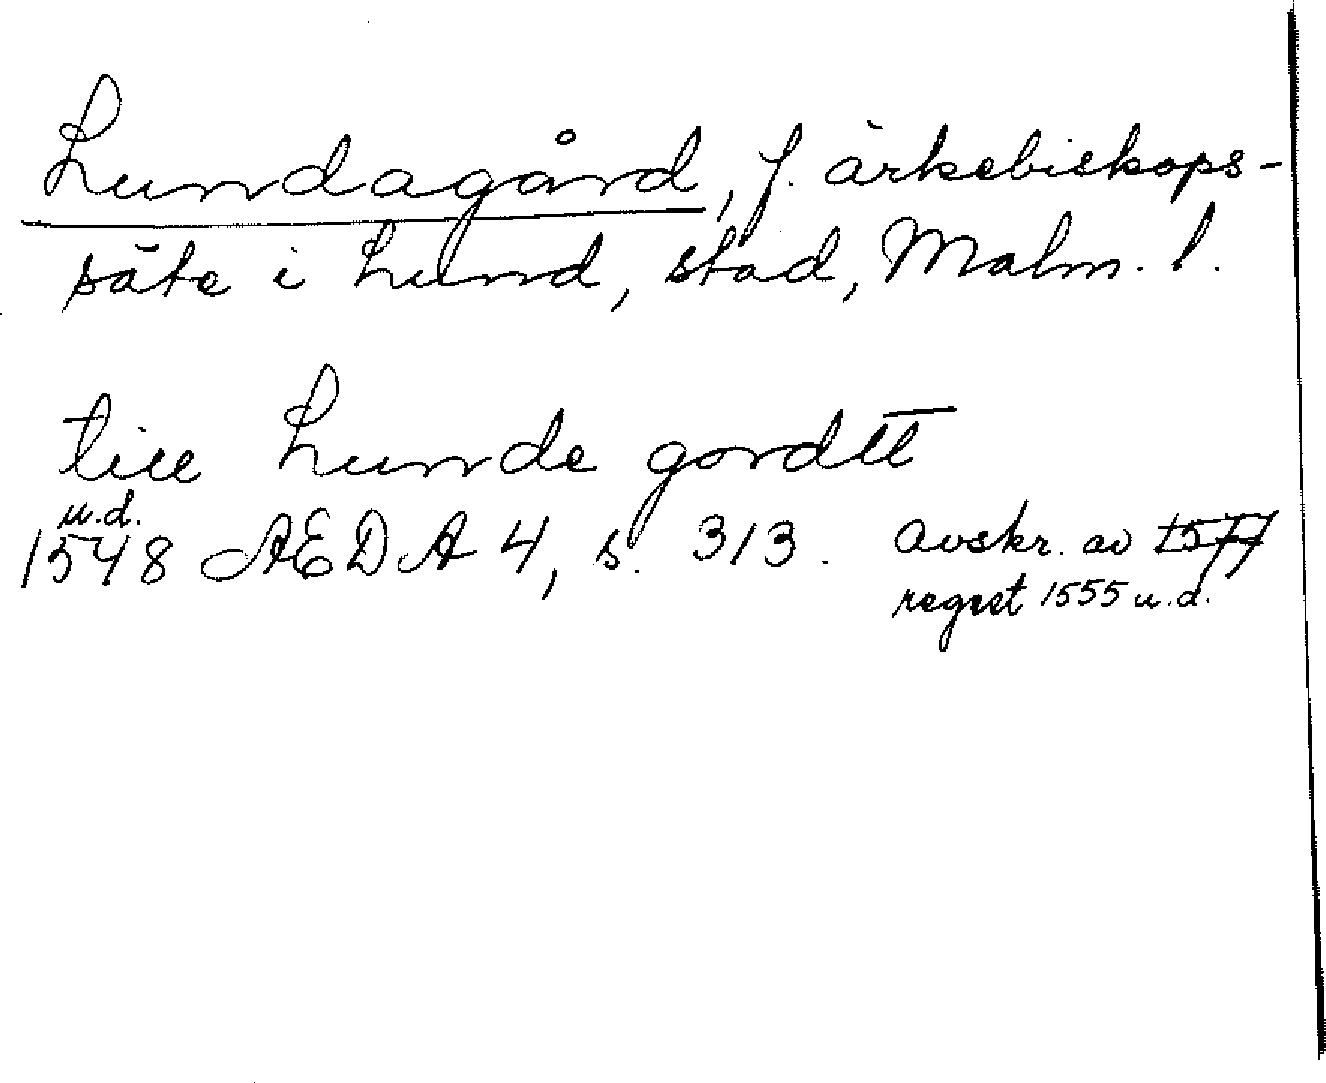 Lundagård, f. ärkebiskops-
säte i Lund, stad, Malm. l.
till Lunde gordtt
u.d.
1548 AEDA 4, s. 313. avskr. av
regist 1555 u.d.